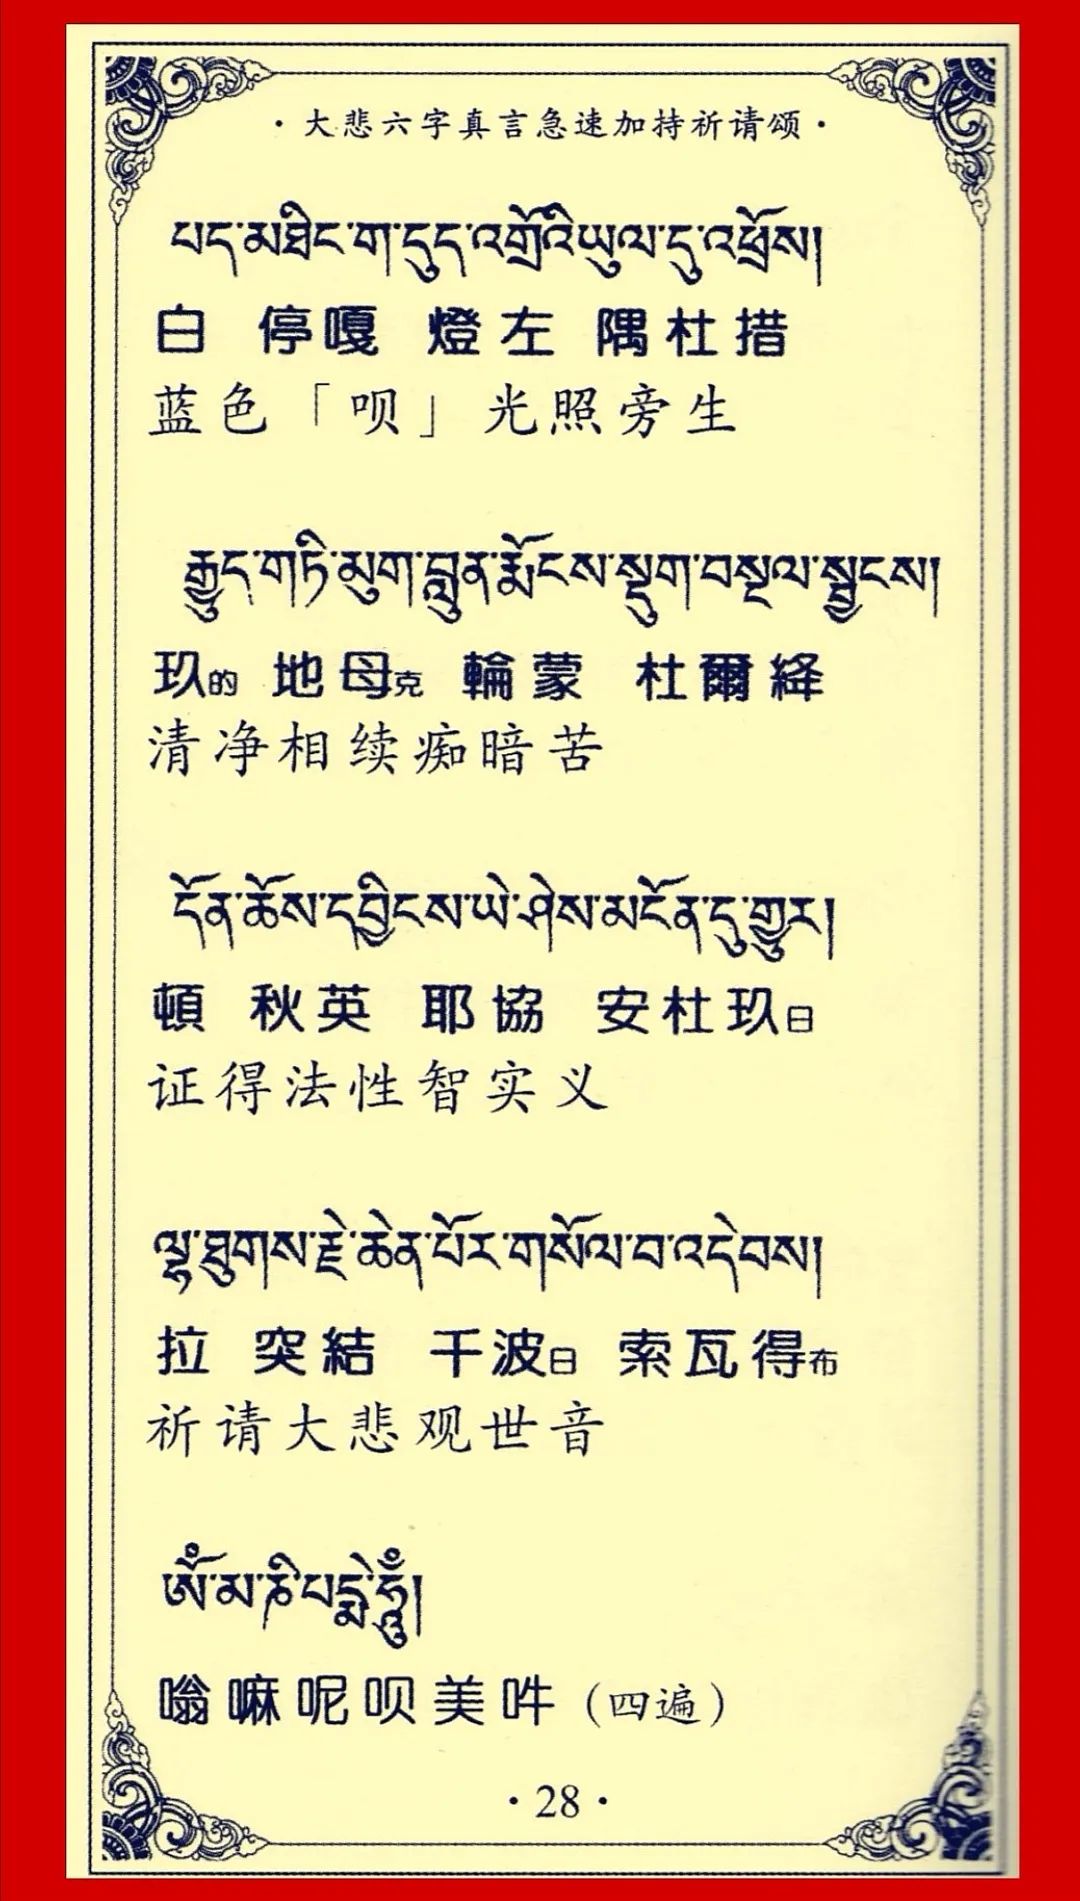 ·大悲六字真言急速加持祈请颂·
པད་མ་ཐིང་ག་དུད་འགྲོའི་ཡུལ་དུ་འཕྲོས།
白 停嘎 燈左 隅杜措
蓝色「呗」光照旁生
རྒྱུད་གཏི་མུག་བླུན་རྨོངས་སྡུག་བསྔལ་སྦྱངས།
玖的 地母克 輪蒙 杜爾絳
清净相续痴暗苦
དོན་ཆོས་དབྱིངས་ཡེ་ཤེས་མངོན་དུ་གྱུར།
頓 秋英 耶協 安杜玖日
证得法性智实义
ལྷ་ཐུགས་རྗེ་ཆེན་པོར་གསོལ་བ་འདེབས།
拉 突結 千波日 索瓦得布
祈请大悲观世音
ཨོཾ་མ་ཎི་པདྨེ་ཧཱུྃ།
嗡嘛呢呗美吽（四遍）
·28·